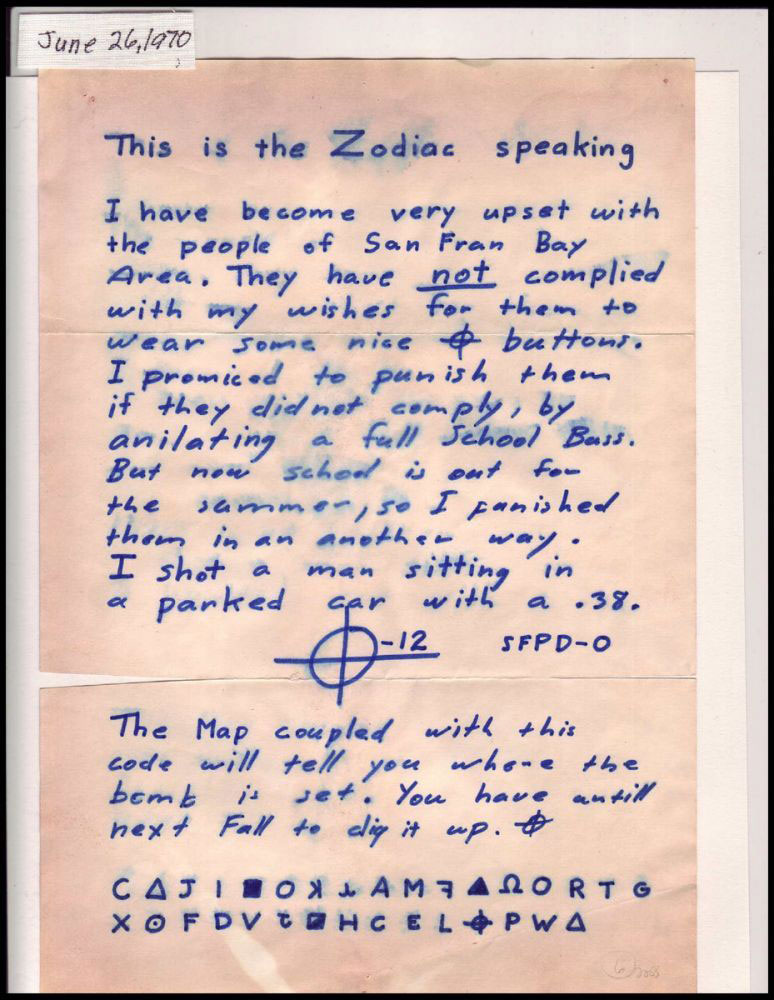 June 26, 1970
This is the Zodiac speaking
I have become very upset with
the people of San Fran Bay
Area. They have not complied
with my wishes for them to
wear some nice ⌖ buttons.
I promiced to punish them
if they did not comply, by
anilating a full School Buss.
But now school is out for
the summer, so I punished
them in an another way.
I shot a man sitting in
a parked car with a .38.
⌖-12 SFPD-0
The Map coupled with this
code will tell you where the
bomb is set. You have untill
next Fall to dig it up. ⌖
C Δ J I ■ O ꓘ A M ꟻ ▲ Ω O R T G
X ⊙ F D V ⊡ H C E L ⌖ P W Δ